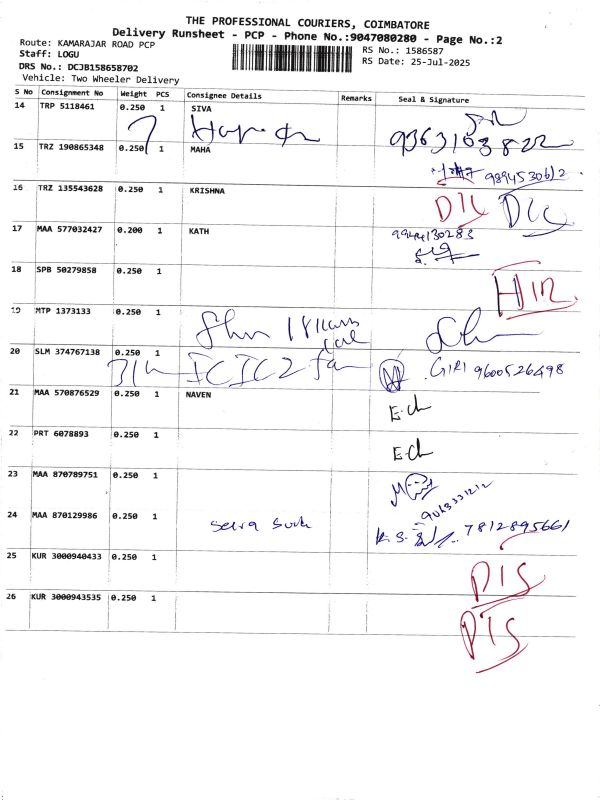 THE PROFESSIONAL COURIERS, COIMBATORE
Delivery Runsheet - PCP - Phone No.:9047080280 - Page No.:2
Route: KAMARAJAR ROAD PCP
RS No.: 1586587
Staff: LOGU
RS Date: 25-Jul-2025
DRS No.: DCJB158658702
Vehicle: Two Wheeler Delivery
S No Consignment No Weight PCS Consignee Details Remarks Seal & Signature
14 TRP 5118461 0.250 1 SIVA
9363103822
15 TRZ 190865348 0.250 1 MAHA
9894530612
16 TRZ 135543628 0.250 1 KRISHNA
D1L
17 MAA 577032427 0.200 1 KATH
9944130283
18 SPB 50279858 0.250 1
19 MTP 1373133 0.250 1
20 SLM 374767138 0.250 1
ICICI
GIRI 9600526498
21 MAA 570876529 0.250 1 NAVEN
E.Ch
22 PRT 6078893 0.250 1
E.Ch
23 MAA 870789751 0.250 1
24 MAA 870129986 0.250 1
7812895661
25 KUR 3000940433 0.250 1
DIS
26 KUR 3000943535 0.250 1
DIS